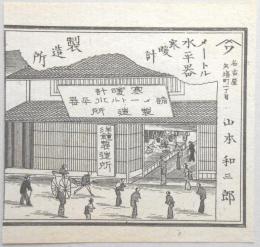 名古屋
矢場町一丁目
山本和三郎
メートル
水平器
寒暖計
製造所
寒暖計
メートル水平器
製造所
製造所